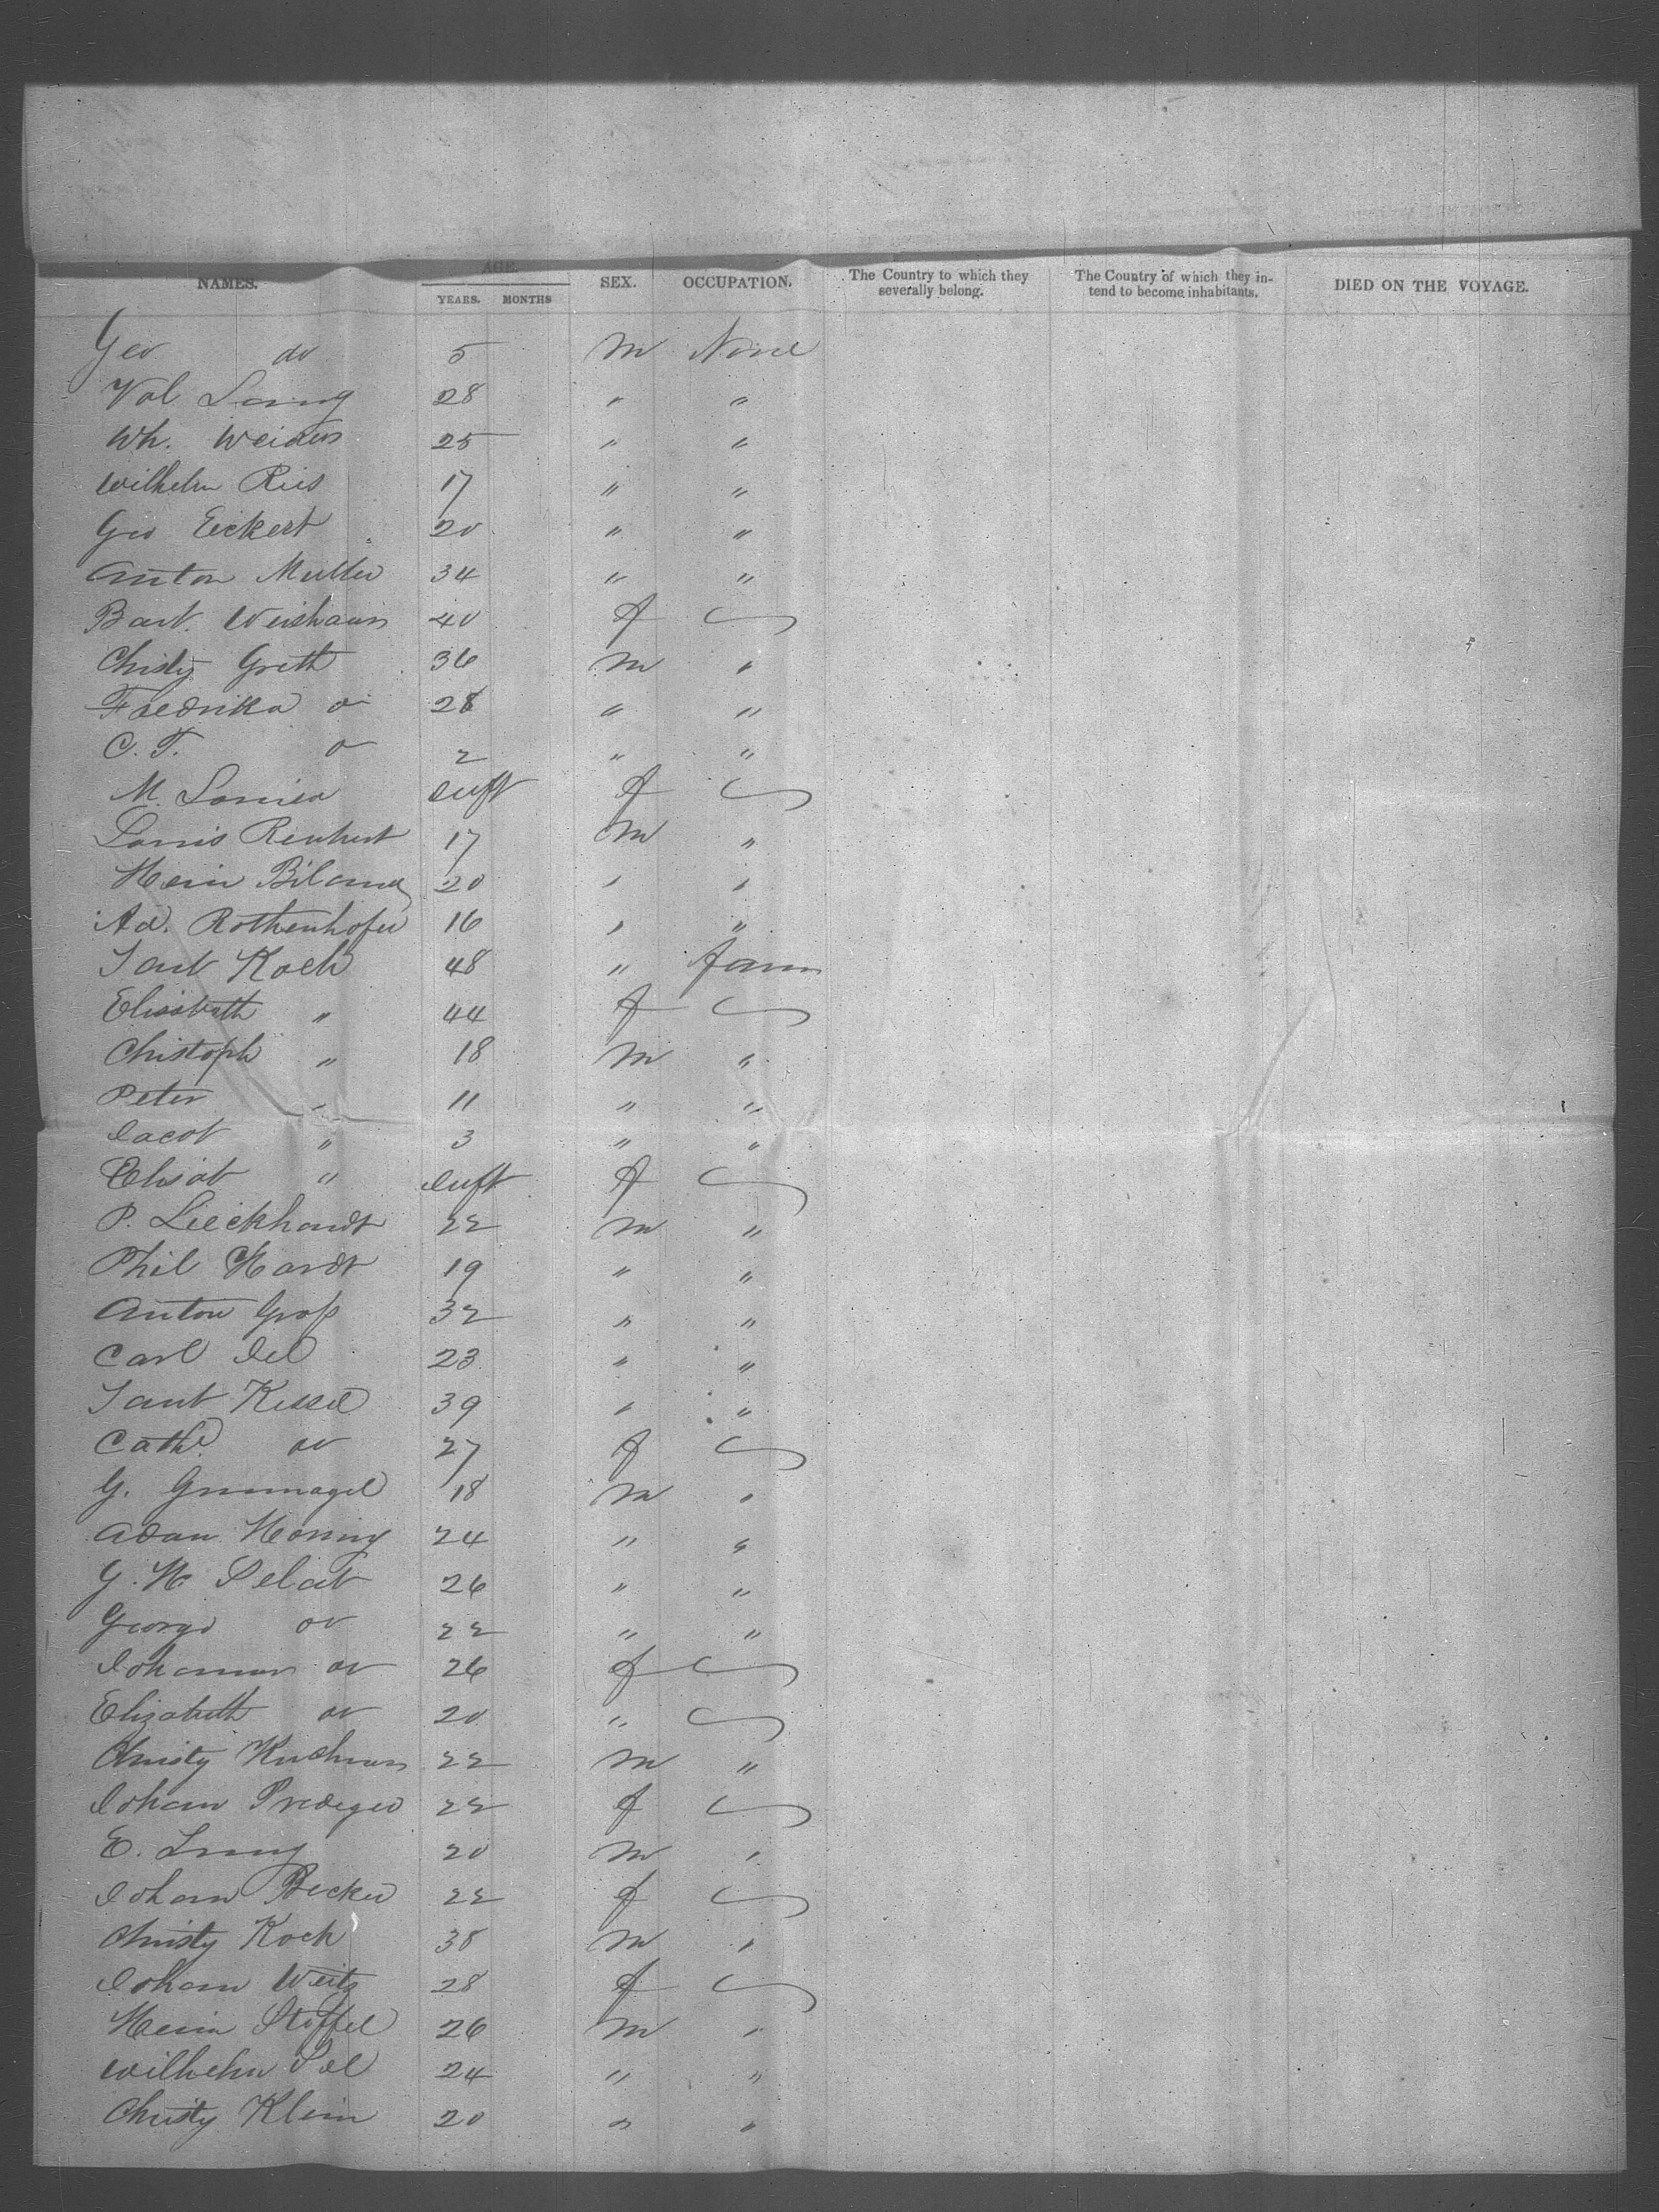 NAMES. AGE. YEARS. MONTHS SEX. OCCUPATION. The Country to which they severally belong. The Country of which they intend to become inhabitants. DIED ON THE VOYAGE.
Geo do 5 M None
Val Lang 28 " "
Wh. 25 " "
Wilhelm Ries 17 " "
Geo Eickert 20 " "
Anton Muller 34 " "
Bart. 40 f
Christy Greth 36 M "
Fredrika do 28 " "
C. T. do 2 " "
M. Louisa Inft f
Louis 17 M "
Hein 20 " "
Ad. Rothenhofer 16 " "
Koch 48 " Farm
Elisabeth " 44 f
Christoph " 18 M "
Peter " 11 " "
Jacob " 3 " "
Elisab " Inft f
P. Lieckhardt 22 M "
Phil Hardt 19 " "
Anton Groß 32 " "
Carl 23 " "
Kessel 39 " "
Cath. do 27 f
G. Grunnagel 18 M "
Adam Horning 24 " "
G. H. 26 " "
George do 22 " "
Johanna do 26 f
Elizabeth do 20 "
Christy 22 M "
Johan Prediger 22 f
E. Lang 20 M "
Johan Becker 22 f
Christy Koch 38 M "
Johan Weitz 28 f
Hein Stoffel 26 M "
Wilhelm 24 " "
Christy Klein 20 " "